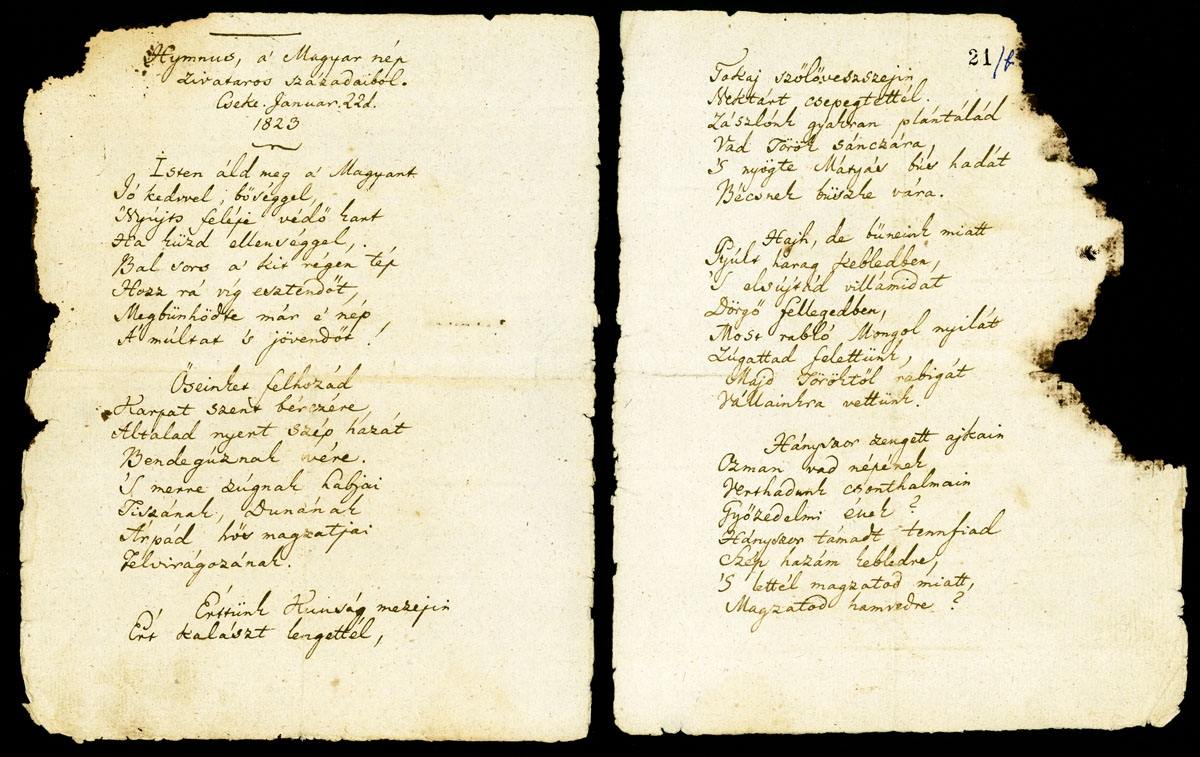 Hymnus, a' Magyar nép
zivataros századaiból.
Cseke. Januar. 22d.
1823
Isten áld meg a' Magyart
Jó kedvvel, bőséggel,
Nyújts feléje védő kart
Ha küzd ellenséggel,
Bal sors a' kit régen tép
Hozz rá víg esztendőt,
Megbünhödte már e' nép
A' múltat 's jövendőt!
Őseinket felhozád
Karpat szent bérczére,
Általad nyert szép hazát
Bendeguznak vére.
'S merre zúgnak habjai
Tiszának, Dunának
Árpád hős magzatjai
Felvirágozának.
Értünk Kunság mezejin
Ért kalászt lengettél,
21/b
Tokaj szőlőveszszejin
Nektárt csepegtettél.
Zászlónk gyakran plántálád
Vad Török sánczára,
'S nyögte Mátyás bús hadát
Bécsnek büszke vára.
Hajh, de büneink miatt
Gyúlt harag kebledben,
'S elsújtád villámidat
Dörgő fellegedben,
Most rabló Mongol nyilát
Zúgattad felettünk,
Majd Töröktől rabigát
Vállainkra vettünk.
Hányszor zengett ajkain
Ozman vad népének
Vert hadunk csonthalmain
Győzedelmi ének?
Hányszor támadt tennfiad
Szép hazám kebledre,
'S lettél magzatod miatt,
Magzatod hamvedre?